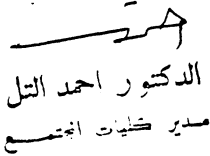 الدكتور احمد التل
مدير كليات المجتمع